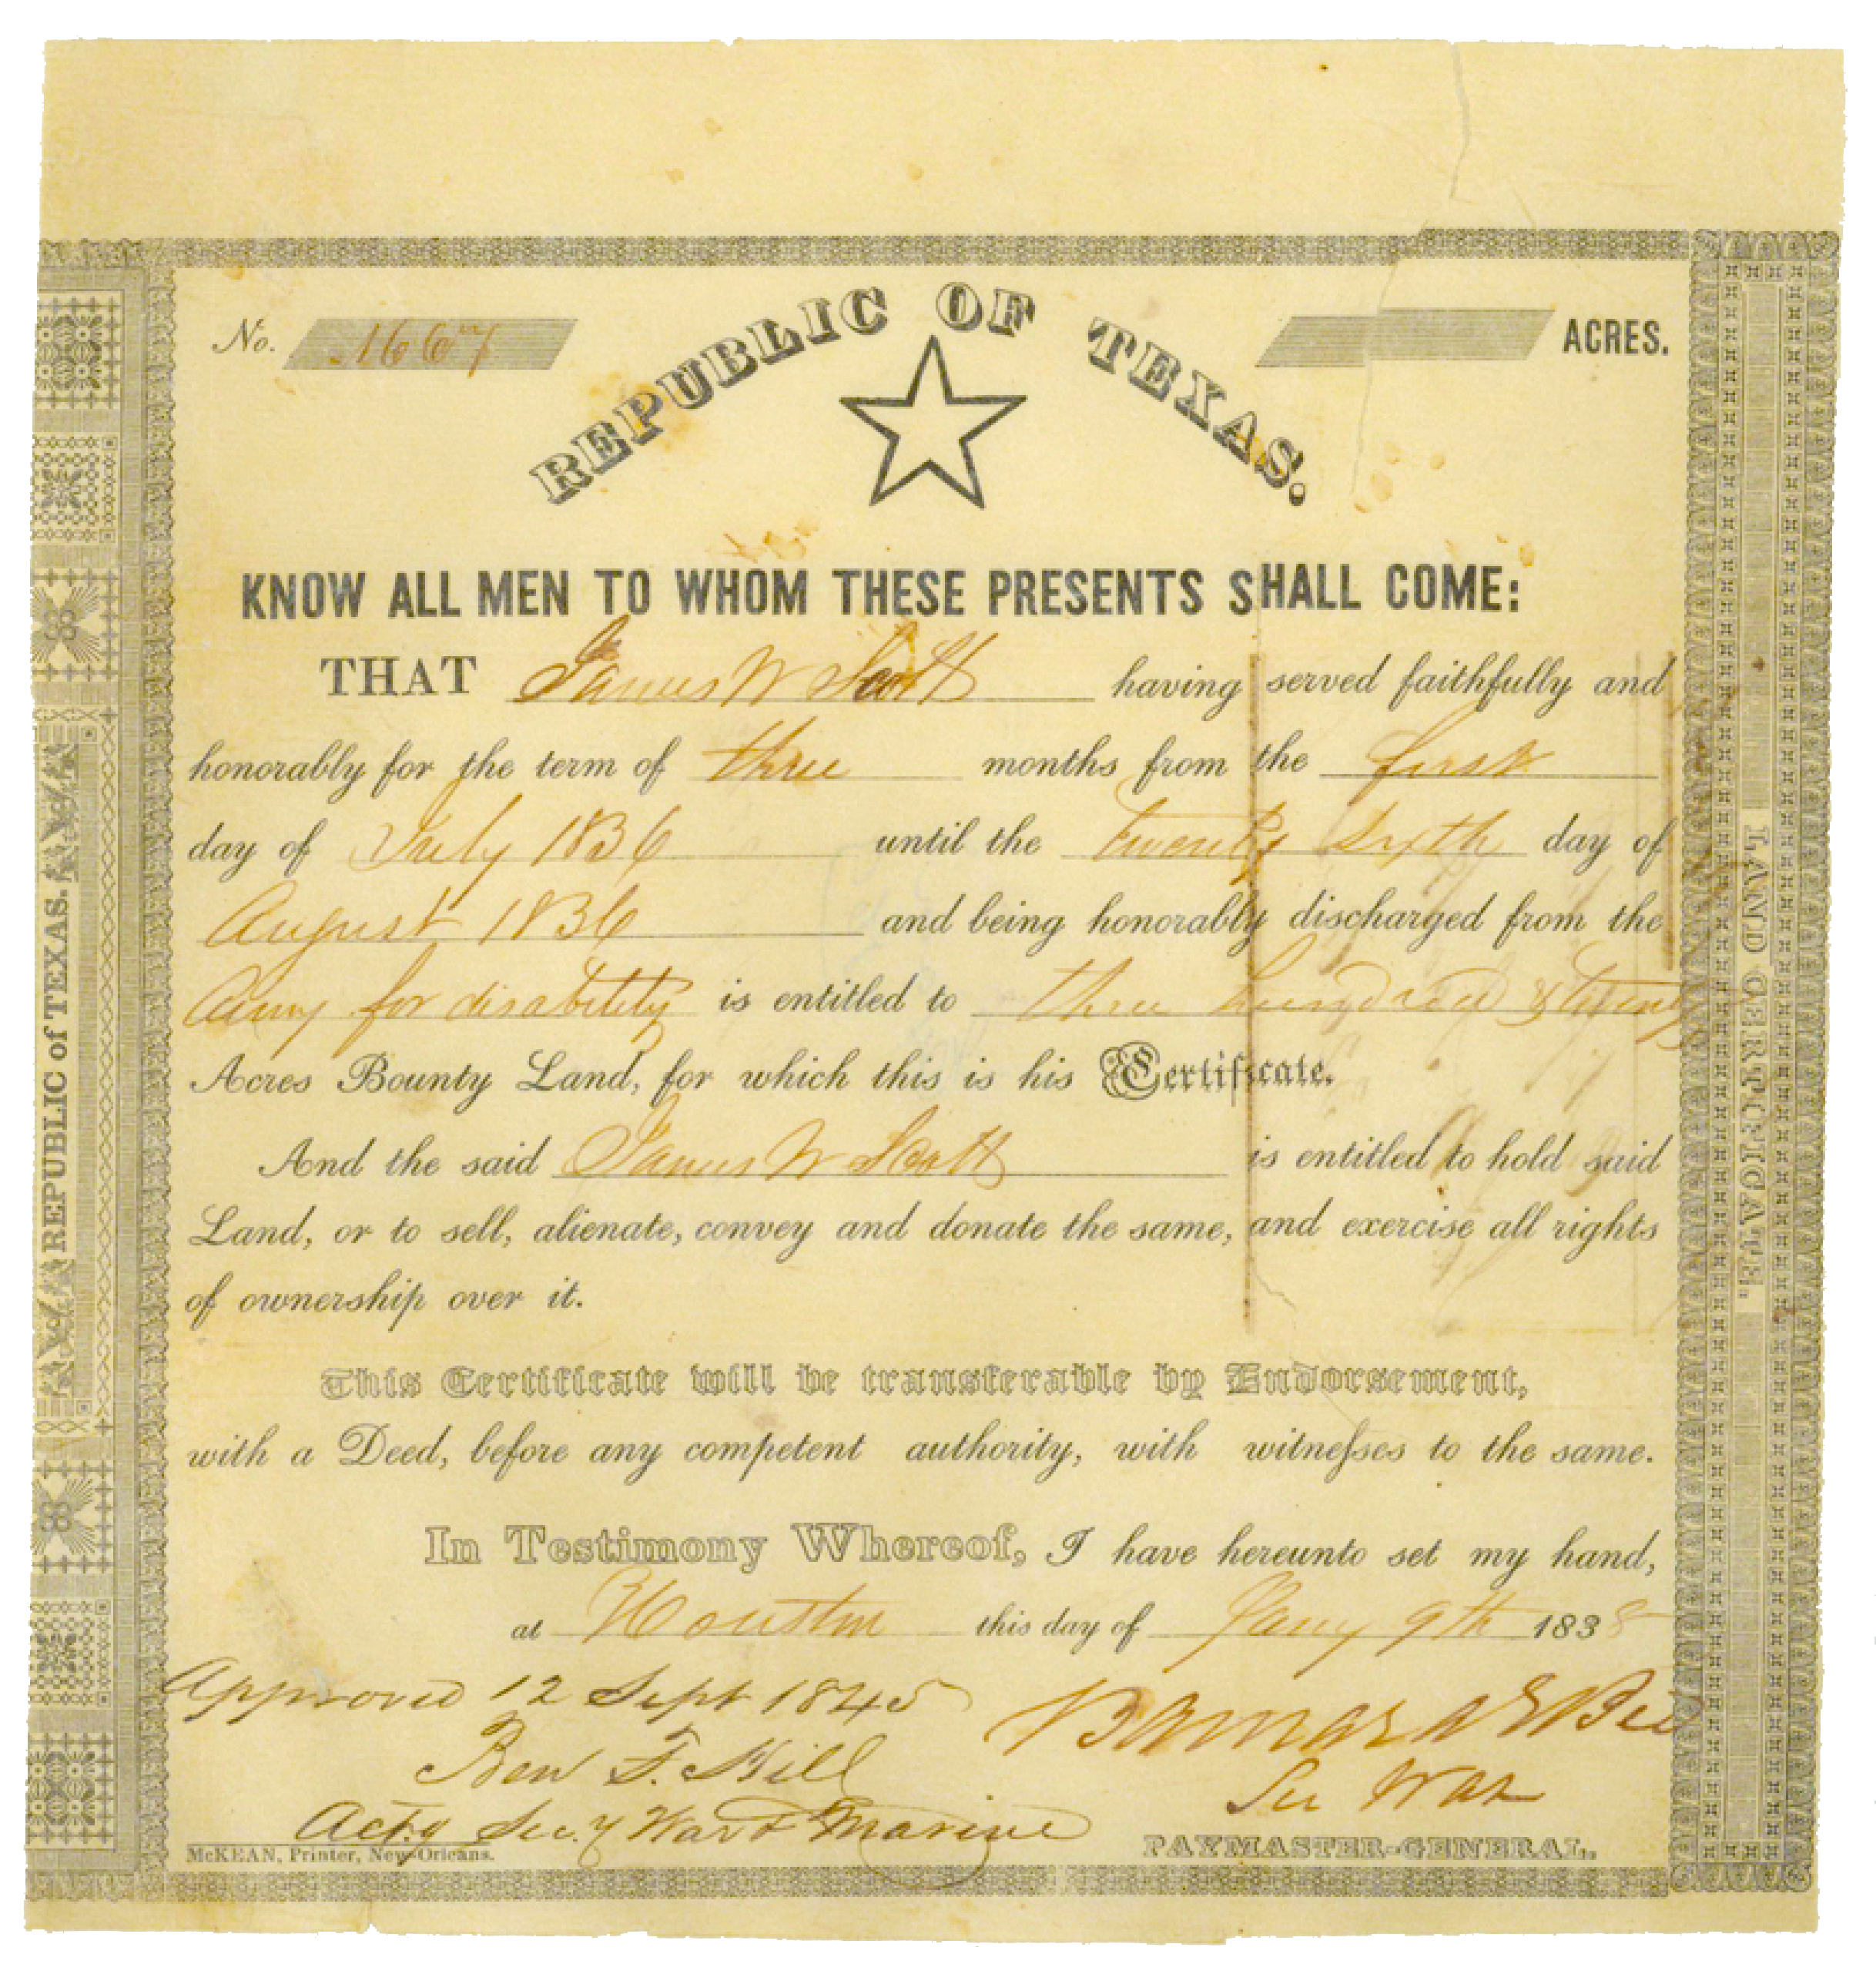 No. 1667
ACRES.
REPUBLIC OF TEXAS.
KNOW ALL MEN TO WHOM THESE PRESENTS SHALL COME:
THAT James W Scott having served faithfully and
honorably for the term of three months from the first
day of July 1836 until the twenty sixth day of
August 1836 and being honorably discharged from the
Army for disability is entitled to three hundred & twenty
Acres Bounty Land, for which this is his Certificate.
And the said James W Scott is entitled to hold said
Land, or to sell, alienate, convey and donate the same, and exercise all rights
of ownership over it.
This Certificate will be transferable by Endorsement,
with a Deed, before any competent authority, with witnesses to the same.
In Testimony Whereof, I have hereunto set my hand,
at Houston this day of Jany 9th 1838
Approved 12 Sept 1845
Barnard E Bee
Ben F. Hill
Sec War
Actg Sec.y War & Marine
PAYMASTER-GENERAL.
McKEAN, Printer, New-Orleans.
REPUBLIC of TEXAS.
LAND CERTIFICATE.